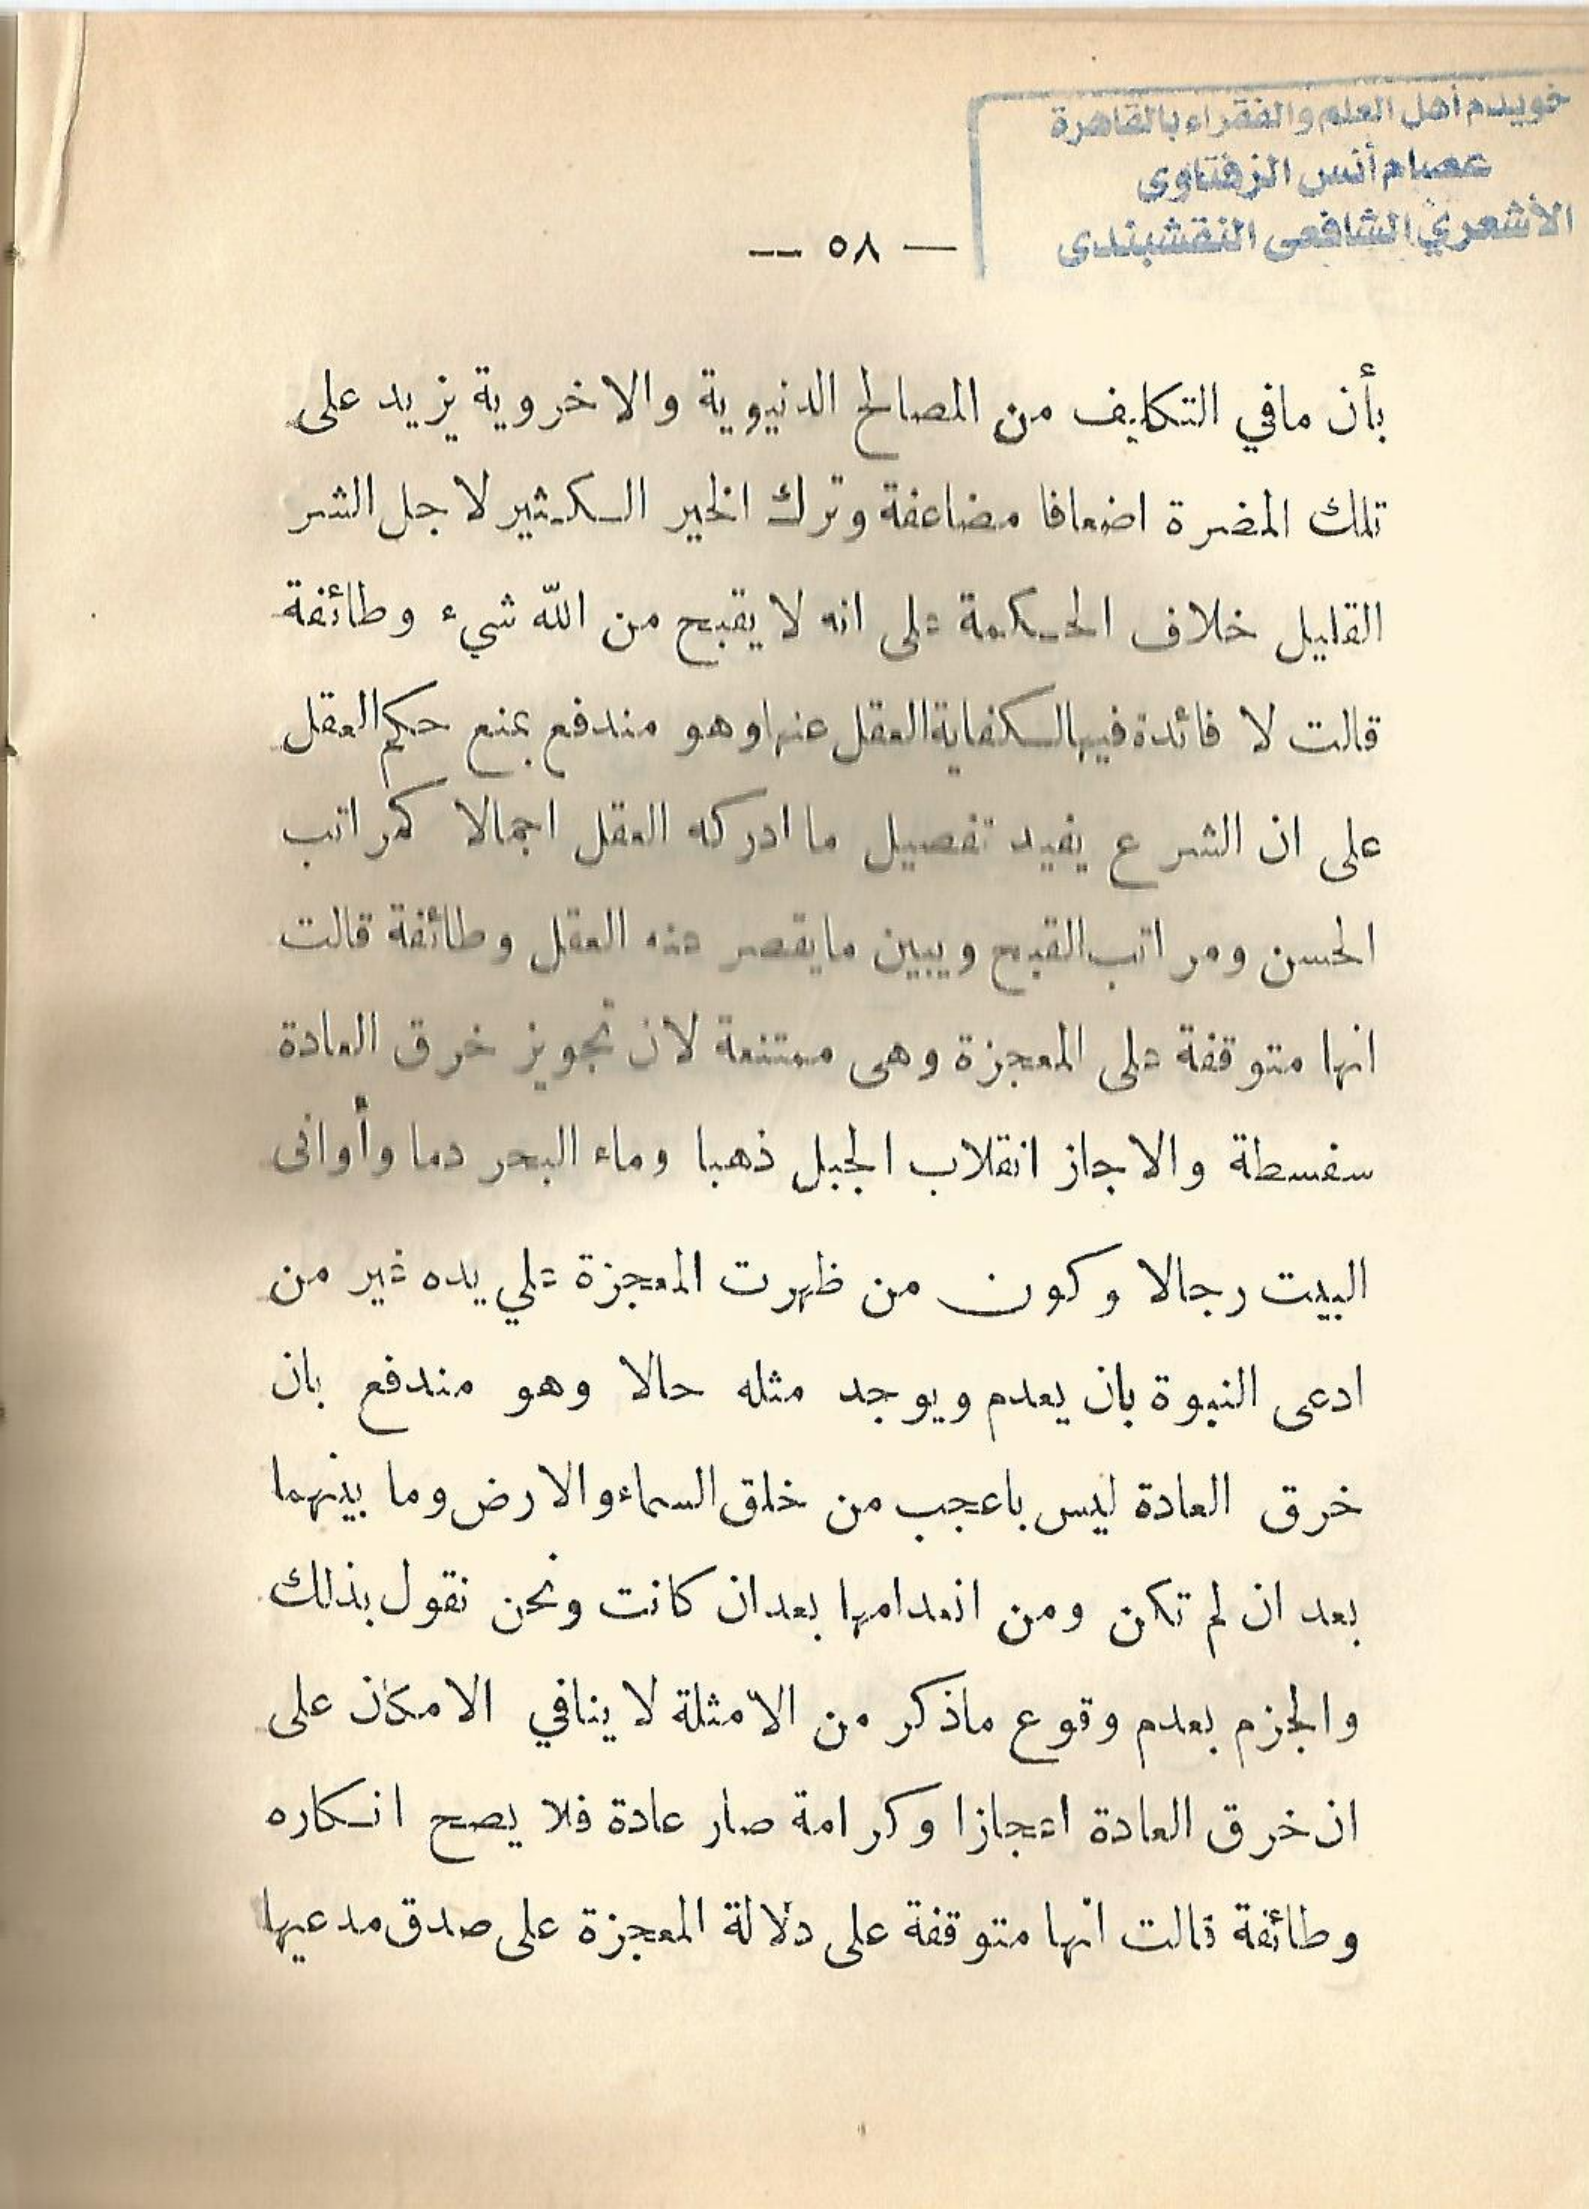 خويدم أهل العلم والفقراء بالقاهرة
عصام أنس الزفتاوى
الأشعري الشافعى النقشبندى
— ٥٨ —
بأن مافي التكليف من المصالح الدنيوية والاخروية يزيد على
تلك المضرة اضعافا مضاعفة وترك الخير الكثير لاجل الشر
القليل خلاف الحكمة على انه لا يقبح من الله شيء وطائفة
قالت لا فائدة فيها لكفاية العقل عنها وهو مندفع بمنع حكم العقل
على ان الشرع يفيد تفصيل ما ادركه العقل اجمالا كمراتب
الحسن ومراتب القبح ويبين مايقصر عنه العقل وطائفة قالت
انها متوقفة على المعجزة وهى ممتنعة لان تجويز خرق العادة
سفسطة والا جاز انقلاب الجبل ذهبا وماء البحر دما وأوانى
البيت رجالا وكون من ظهرت المعجزة علي يده غير من
ادعى النبوة بان يعدم ويوجد مثله حالا وهو مندفع بان
خرق العادة ليس باعجب من خلق السماء والارض وما بينهما
بعد ان لم تكن ومن انعدامها بعد ان كانت ونحن نقول بذلك
والجزم بعدم وقوع ماذكر من الامثلة لا ينافي الامكان على
ان خرق العادة اعجازا وكرامة صار عادة فلا يصح انكاره
وطائفة قالت انها متوقفة على دلالة المعجزة على صدق مدعيها